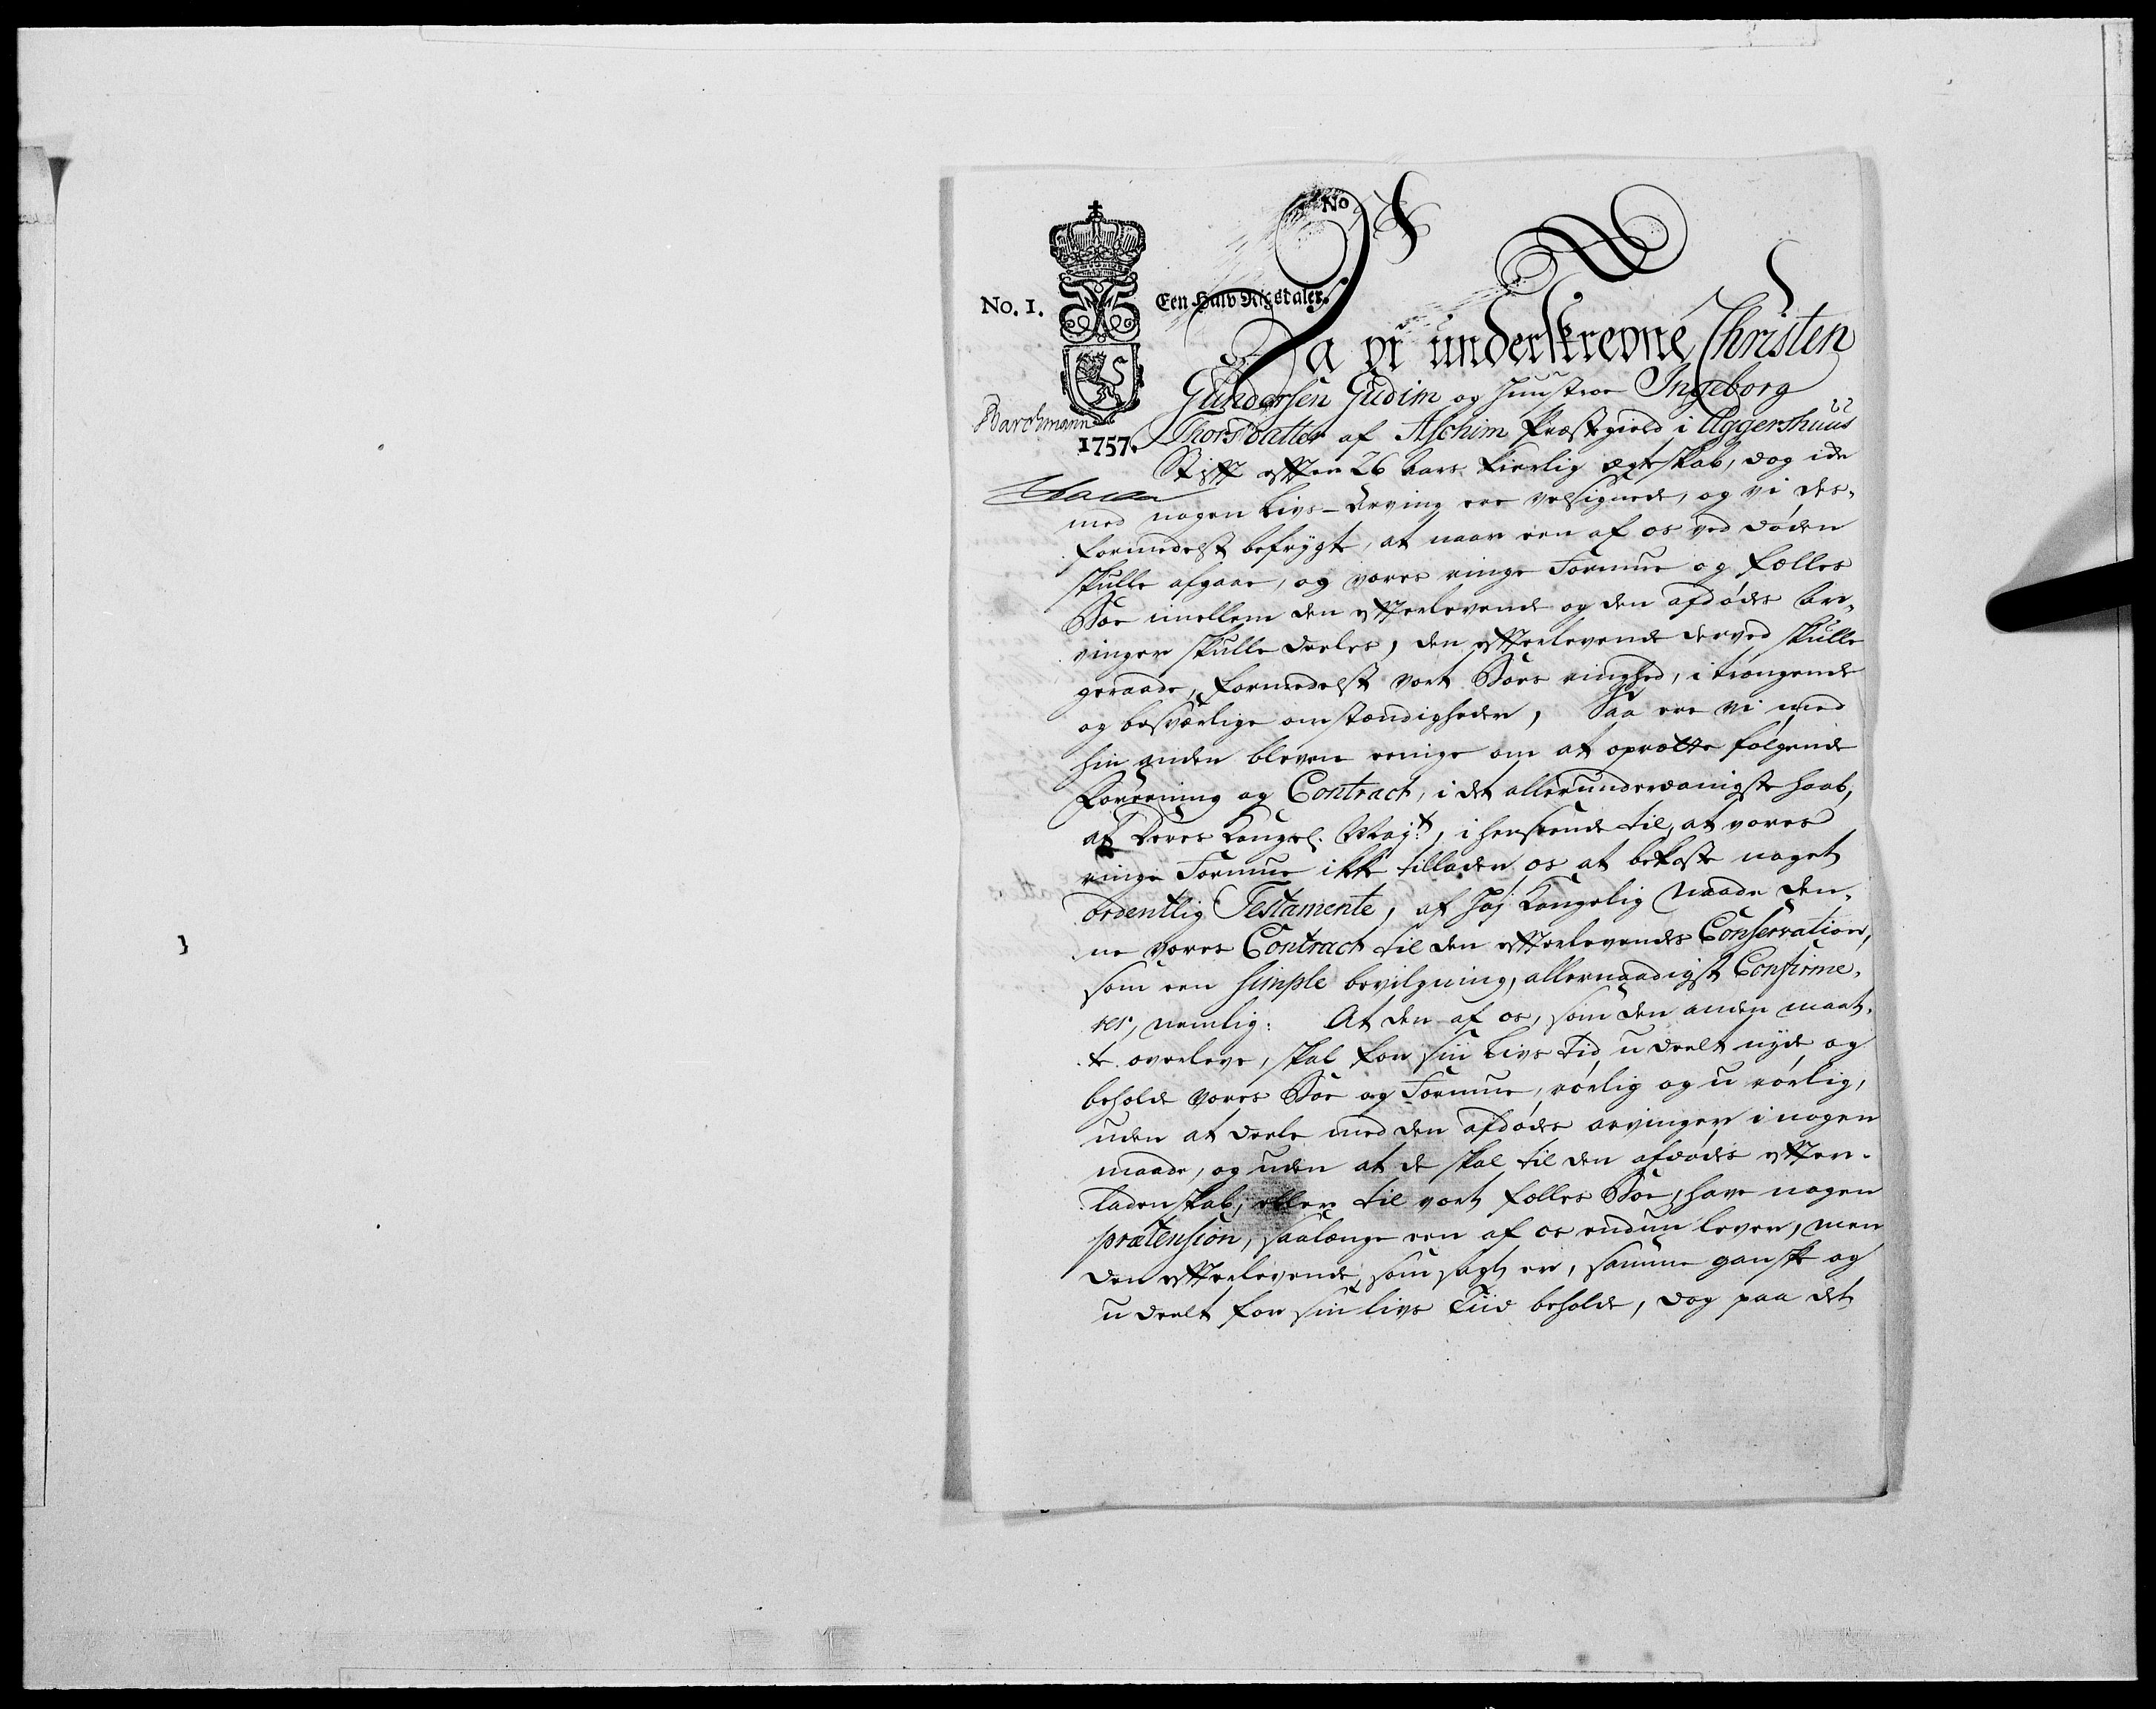 No
No. 1.
Een Halv Rigsdaler.
Da vi underskrevne Christen
Gundersen Gudim og Huustroe Ingeborg
Barchmann
Thorsdatter af Aschim Præstegield i Aggershuus
1757.
Stift efter 26 Aars kierlig ægteskab, dog icke
med nogen Livs-Arving ere velsignede, og vi des-
formedelst befrygte, at naar een af os ved døden
skulle afgaae, og vores ringe Formue og fælles
Boe imellem den efterlevende og den afdødes Ar-
vinger skulle deeles, den efterlevende derved skulle
geraade, formedelst vort Boes ringhed, i trængende
og besværlige omstændigheder, Saa ere vi med
hin anden bleven eenige om at oprætte følgende
Foreening og Contract, i det allerunderdanigste haab,
at Deres Kongel. Mayt:, i henseende til, at vores
ringe Formue ikke tillader os at bekoste noget
ordentlig Testamente, af Høj Kongelig Naade den-
ne vores Contract til den efterlevendes Conservation,
som een simple bevilgning, allernaadigst Confirme-
rer, nemlig: At den af os, som den anden maat-
te overleve, skal for sin Livs Tid udeelt nyde og
beholde vores Boe og Formue, rørlig og u rørlig,
uden at deele med den afdødes arvinger i nogen
maade, og uden at de skal til den afdødes efter-
ladenskab, eller til vort fælles Boe, have nogen
prætension, saalænge een af os endnu lever, men
den efterlevende, som sagt er, samme ganske og
udeelt for sin livs Tiid beholde, dog paa det